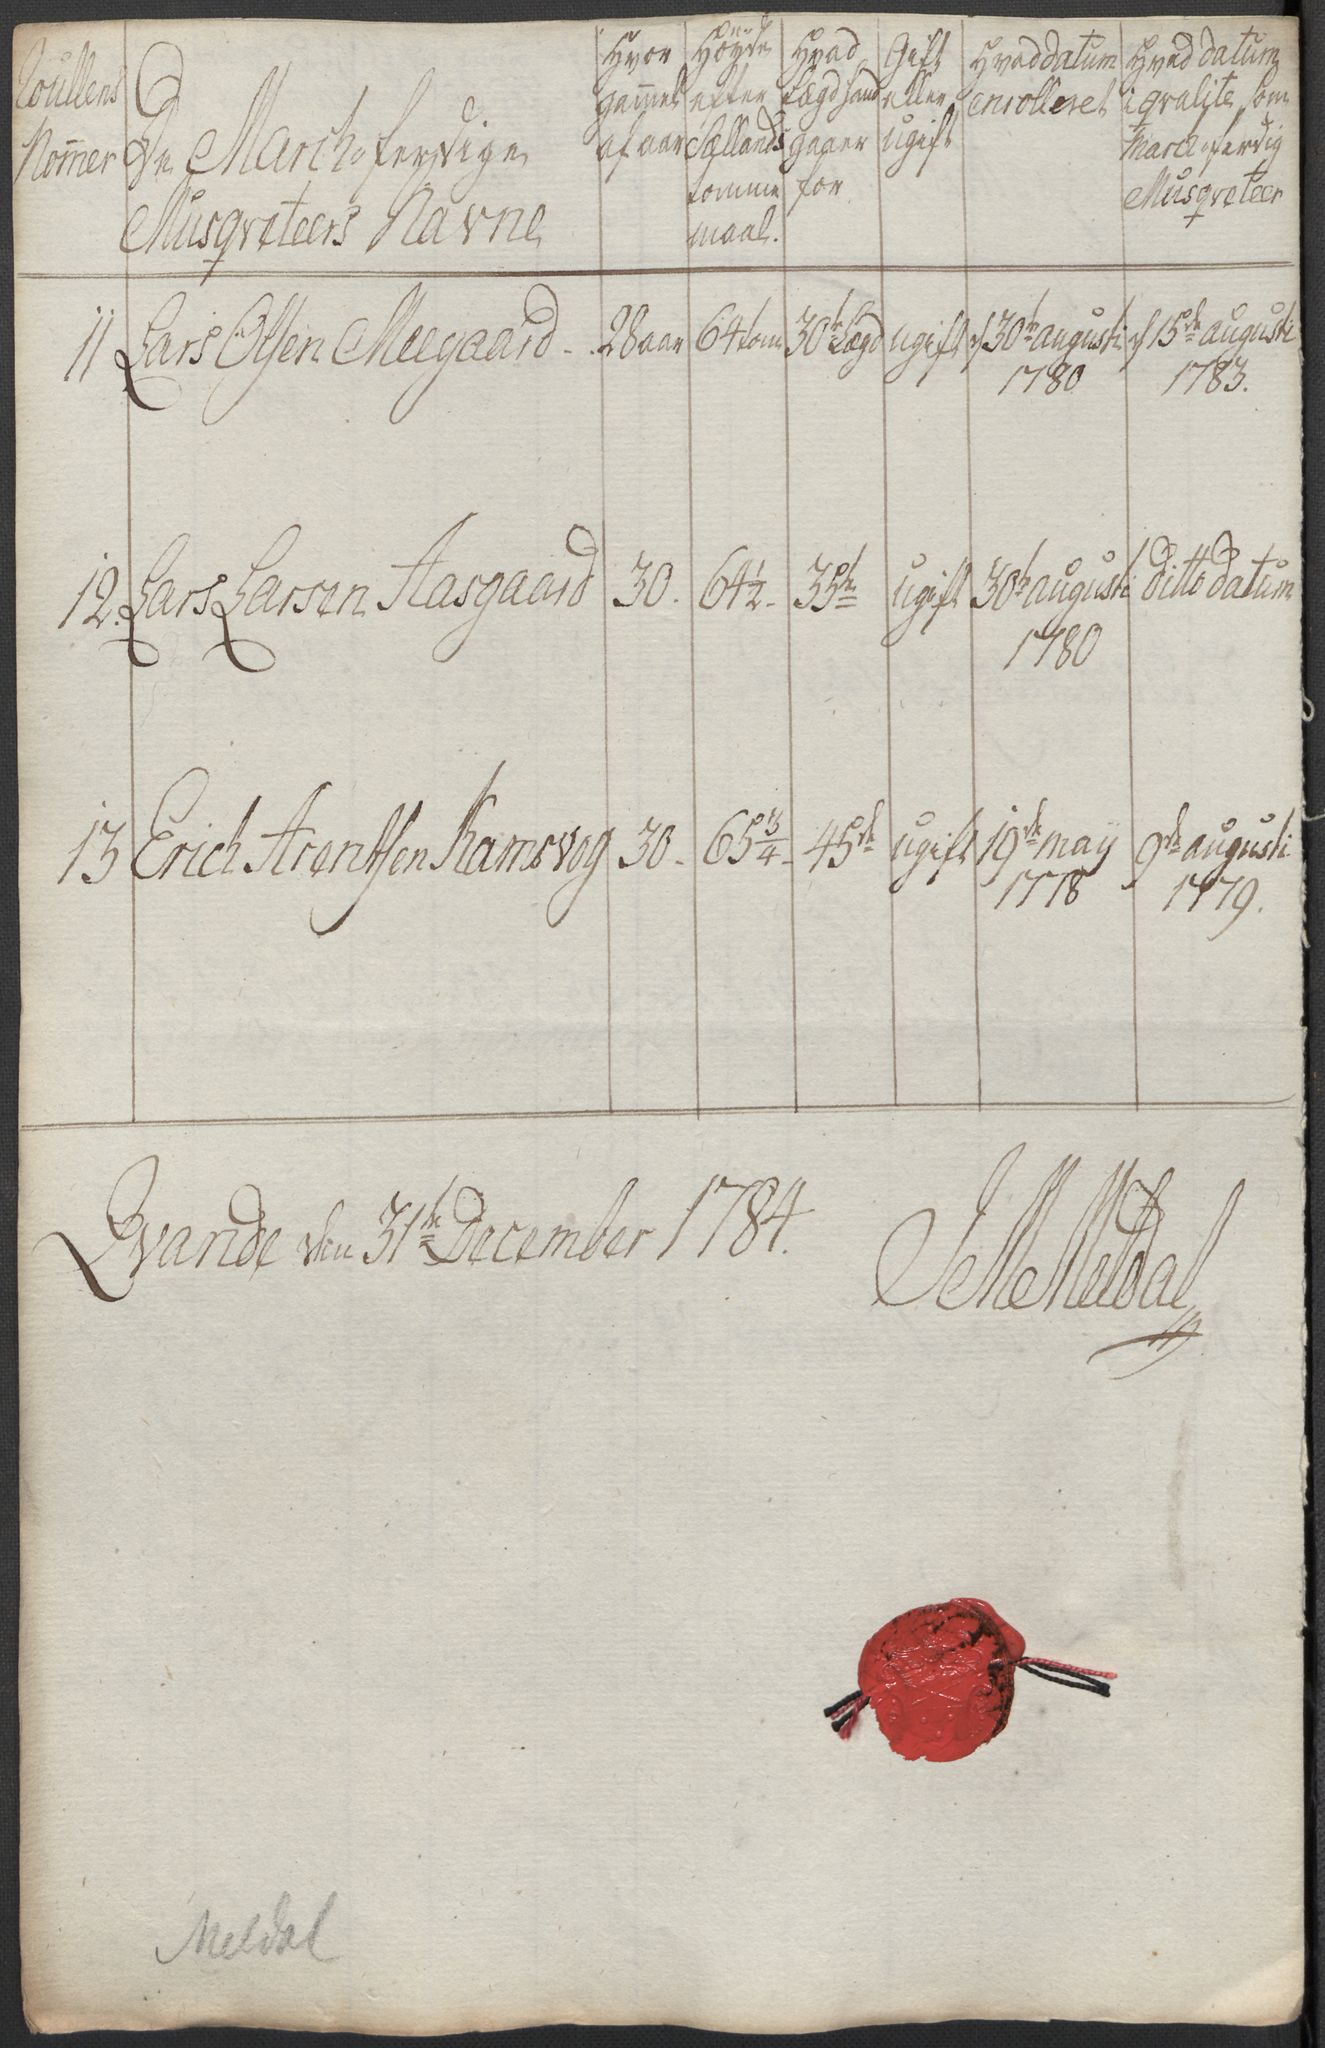 Roullens Nom̄er
De March-ferdige Musqveteers Navne
Hvor gam̄el af aar
Høyde efter Sællands tomme maal.
Hvad Lægd hand gaaer for
Gift eller ugift
Hvad datum enrolleret
Hvad datum i qvalite som March-ferdig Musqveteer
11 Lars Olsen Meegaard - 28 aar 64 tom 30te Lægd ugift d 30te augusti 1780 d 15de augusti 1783.
12. Lars Larsen Aasgaard 30. 64½. 35te ugift 30te augusti 1780 ditto datum
13 Erich Arentsen Ramsvog 30. 65¾. 45de ugift 19de may 1778 9de augusti 1779.
Qvande den 31te December 1784.
Meldal
Meldal